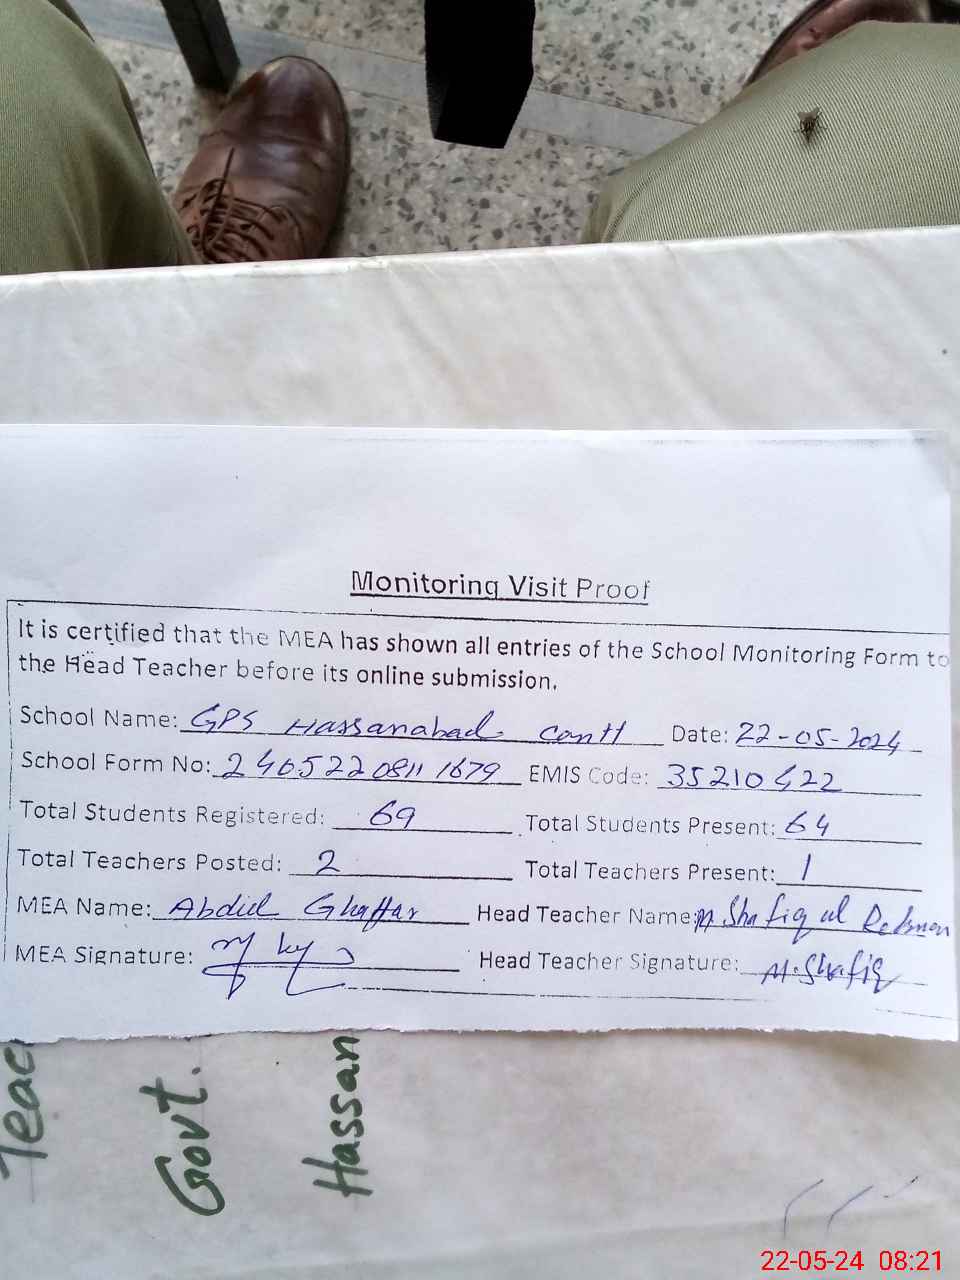 Monitoring Visit Proof
It is certified that the MEA has shown all entries of the School Monitoring Form to
the Head Teacher before its online submission.
School Name: GPS Hassanabad Cantt Date: 22-05-2024
School Form No: 24052208111679 EMIS Code: 35210422
Total Students Registered: 69 Total Students Present: 64
Total Teachers Posted: 2 Total Teachers Present: 1
MEA Name: Abdul Ghaffar Head Teacher Name: M Shafiq ul Rehman
MEA Signature: Head Teacher Signature: M.Shafiq
Teac
Govt.
Hassan
22-05-24 08:21